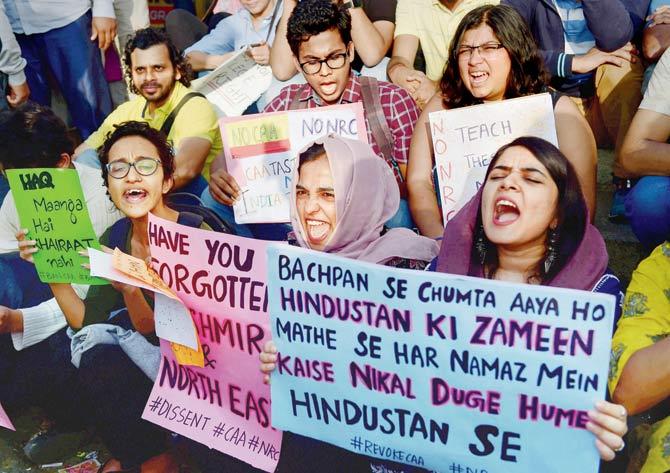 HAQ
Maangа
Hai
KHAIRAAT
nahi
NO CAA
NO NRC
CAA
TEACH
HAVE YOU
FORGOTTEN
KASHMIR
&
NORTH EAST
#DISSENT #CAA #NRC
BACHPAN SE CHUMTA AAYA HO
HINDUSTAN KI ZAMEEN
MATHE SE HAR NAMAZ MEIN
KAISE NIKAL DUGE HUME
HINDUSTAN SE
#REVOKECAA